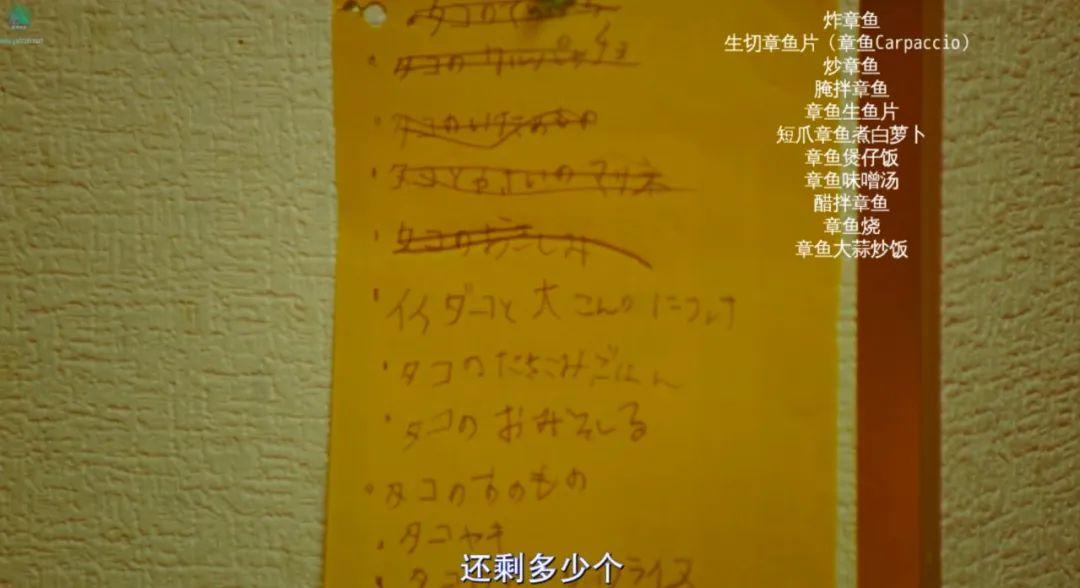 タコの
タコのカルパッチョ
タコのいためもの
タコとやさいのマリネ
タコのおさしみ
イイダコと大こんのにつけ
タコのたきこみごはん
タコのおみそしる
タコのすのもの
タコヤキ
タコ
ライス
炸章鱼
生切章鱼片（章鱼Carpaccio）
炒章鱼
腌拌章鱼
章鱼生鱼片
短爪章鱼煮白萝卜
章鱼煲仔饭
章鱼味噌汤
醋拌章鱼
章鱼烧
章鱼大蒜炒饭
还剩多少个